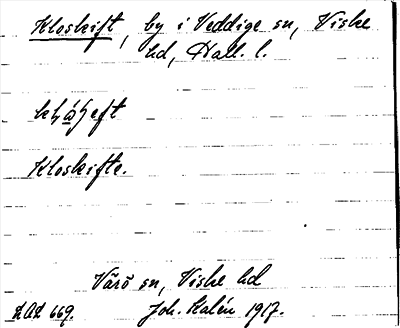 Kloskift, by i Veddige sn, Viske
hd, Hall. l.
Kloskifte.
Värö sn, Viske hd
LAL 669. Joh. Kalén 1917.